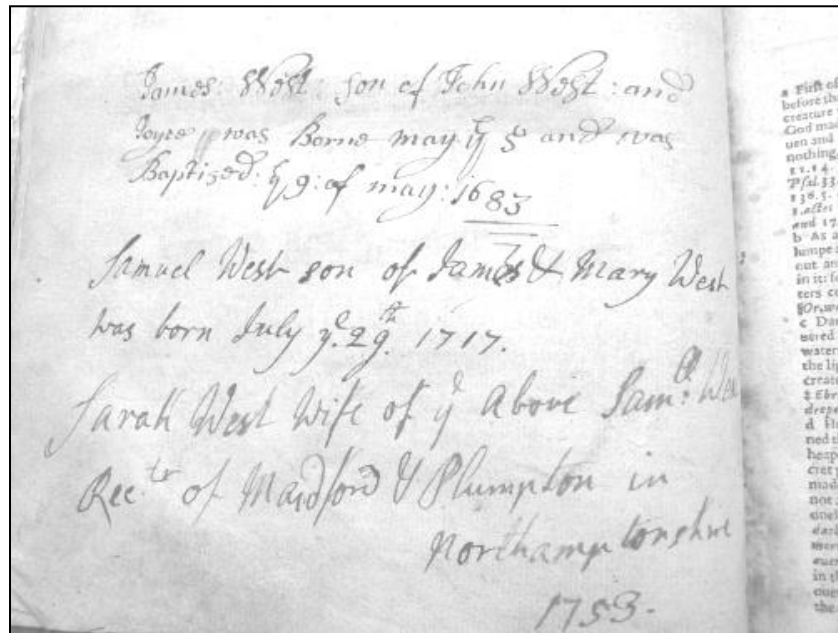 James: West: son of John West: and
Joyce was Borne may ye 5 and was
Baptised: ye 9: of may: 1683
Samuel West son of James & Mary West
was born July ye. 29th. 1717.
Sarah West Wife of ye Above Saml: Wes
Recter of Maidford & Plumpton in
Northamptonshire
1753.
a First of
before the
creature
God mad
uen and
nothing,
11.14.
Psal.33.
136.5.
1.actes
and 17.
b As a
lumpe
out an
in it: f
ters co
Or, w
c Dar
uered
water
the lig
creat
deepe
d
ned t
heape
cret
mad
not
in th
the